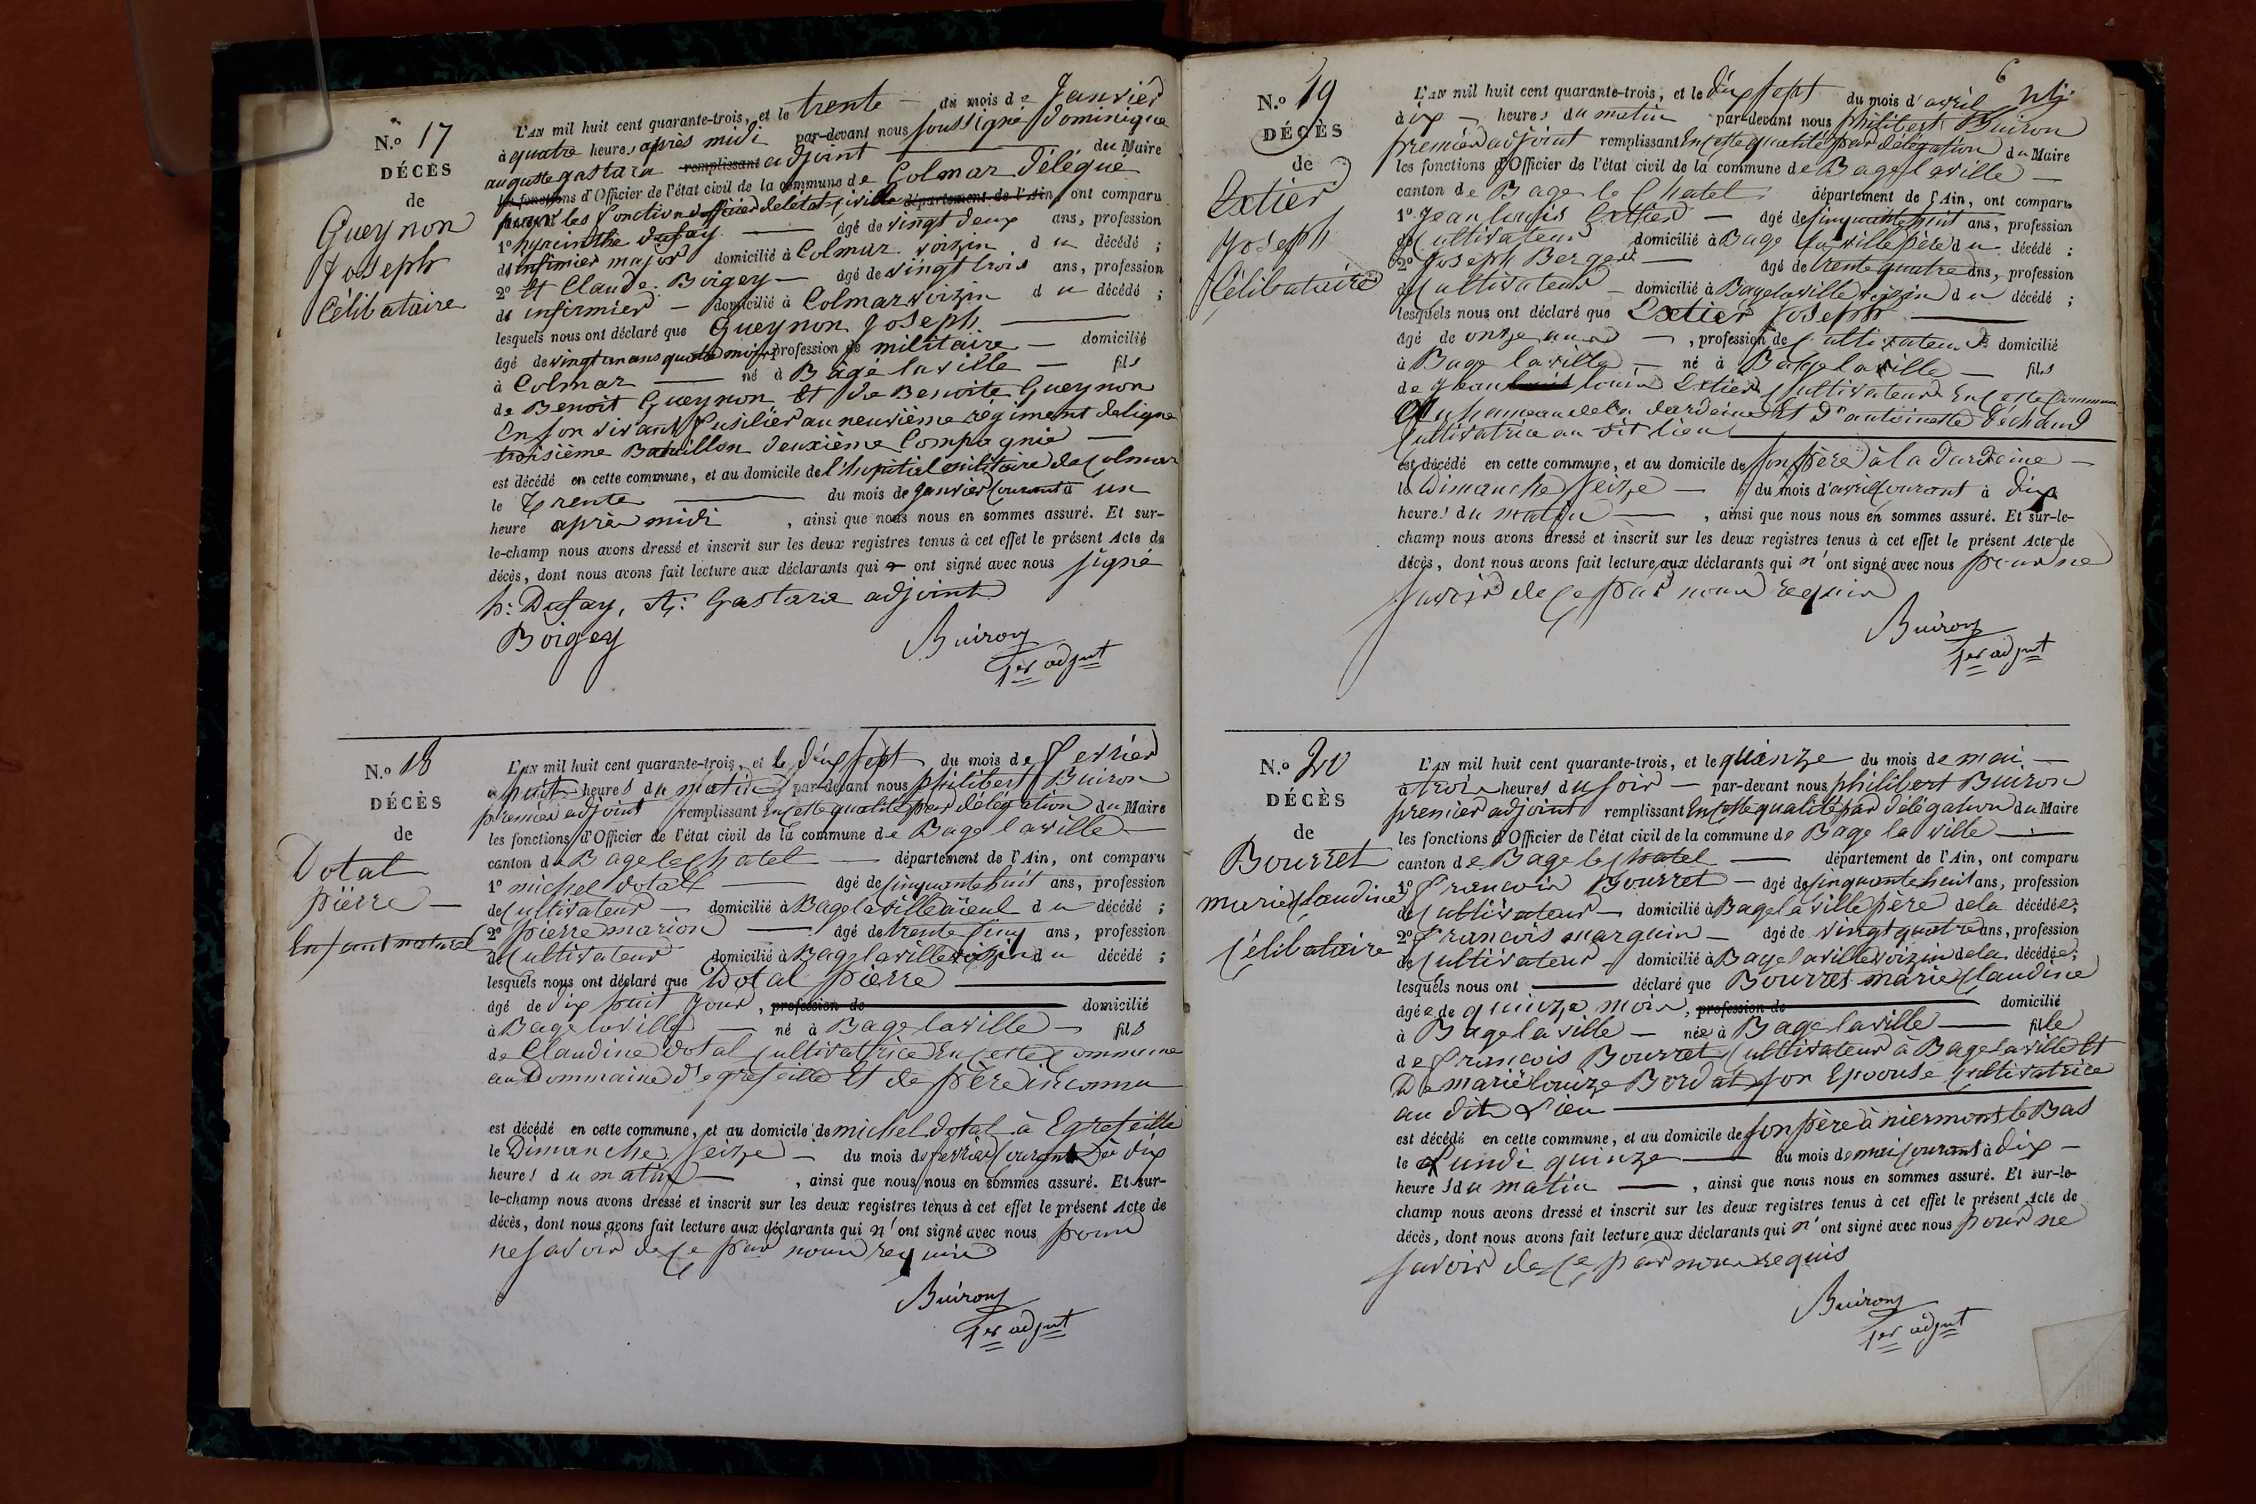 N.o 17
DÉCÈS
de
Gueynon
Joseph
Célibataire
L'AN mil huit cent quarante-trois, et le trente du mois de Janvier
à quatre heures après midi par-devant nous soussigné Dominique
auguste gastara remplissant adjoint du Maire
les fonctions d'Officier de l'état civil de la commune de Colmar délégué
les fonctions d'officier de l'état civil département de l'Ain, ont comparu
1o hyacinthe dufay âgé de vingt deux ans, profession
de infirmier major domicilié à Colmar voizin du décédé ;
2o Et Claude Boigey âgé de vingt trois ans, profession
de infirmier domicilié à Colmar voizin du décédé ;
lesquels nous ont déclaré que Gueynon Joseph
âgé de vingt un ans quatre mois profession de militaire domicilié
à Colmar né à Bagé la ville fils
de Benoit Gueynon Et de Benoite Gueynon
En son vivant fusilier au neuvième régiment de ligne
troisième Bataillon deuxième Compagnie
est décédé en cette commune, et au domicile de l'hopital militaire de Colmar
le trente du mois de janvier courant à un
heure après midi, ainsi que nous nous en sommes assuré. Et sur-
le-champ nous avons dressé et inscrit sur les deux registres tenus à cet effet le présent Acte de
décès, dont nous avons fait lecture aux déclarants qui ont signé avec nous signé
h: Dufay, A: Gastara adjoint
Boigey Buiron
1er adjnt
N.o 18
DÉCÈS
de
Dotal
pierre
Enfant naturel
L'AN mil huit cent quarante-trois, et le dix sept du mois de fevrier
à huit heures du matin par-devant nous philibert Buiron
premier adjoint remplissant En cette qualité par délégation du Maire
les fonctions d'Officier de l'état civil de la commune de Bage la ville
canton de Bage le chatel département de l'Ain, ont comparu
1o michel dotal âgé de cinquante huit ans, profession
de cultivateur domicilié à Bage la ville aïeul du décédé ;
2o pierre marion âgé de trente cinq ans, profession
de cultivateur domicilié à Bage la ville voizin du décédé ;
lesquels nous ont déclaré que Dotal pierre
âgé de dix huit jour, profession de domicilié
à Bage la ville né à Bage la ville fils
de Claudine dotal cultivatrice En cette commune
au Dommaine d'egrefeuille Et de père inconnu
est décédé en cette commune, et au domicile de michel dotal à Egrefeuille
le Dimanche seize du mois de fevrier courant à dix
heures du matin, ainsi que nous nous en sommes assuré. Et sur-
le-champ nous avons dressé et inscrit sur les deux registres tenus à cet effet le présent Acte de
décès, dont nous avons fait lecture aux déclarants qui n'ont signé avec nous pour
ne savoir de ce par nous requis
Buiron
1er adjnt
6
N.o 19
DÉCÈS
de
Extier
Joseph
Célibataire
L'AN mil huit cent quarante-trois, et le dix sept du mois d'avril
à ix heures du matin par-devant nous philibert Buiron
premier adjoint remplissant En cette qualité par délégation du Maire
les fonctions d'Officier de l'état civil de la commune de Bage la ville
canton de Bage le Chatel département de l'Ain, ont comparu
1o Jean louis Extier âgé de cinquante huit ans, profession
de cultivateur domicilié à Bage la ville père du décédé ;
2o Joseph Berger âgé de trente quatre ans, profession
de cultivateur domicilié à Bage la ville voizin du décédé ;
lesquels nous ont déclaré que Extier Joseph
âgé de onze ans, profession de cultivateur domicilié
à Bage la ville né à Bage la ville fils
de Jean louis Extier cultivateur En cette Commune
au hameau de la dardaine Et d'antoinette dechaud
cultivatrice au dit lieu
est décédé en cette commune, et au domicile de son père à la dardaine
le Dimanche seize du mois d'avril courant à dix
heures du matin, ainsi que nous nous en sommes assuré. Et sur-le-
champ nous avons dressé et inscrit sur les deux registres tenus à cet effet le présent Acte de
décès, dont nous avons fait lecture aux déclarants qui n'ont signé avec nous pour ne
savoir de ce par nous requis
Buiron
1er adjnt
N.o 20
DÉCÈS
de
Bourret
marie Claudine
Célibataire
L'AN mil huit cent quarante-trois, et le quinze du mois de mai
à trois heures du soir par-devant nous philibert Buiron
premier adjoint remplissant En cette qualité par délégation du Maire
les fonctions d'Officier de l'état civil de la commune de Bage la ville
canton de Bage le chatel département de l'Ain, ont comparu
1o francois Bourret âgé de cinquante huit ans, profession
de cultivateur domicilié à Bage la ville père de la décédée ;
2o francois marguin âgé de vingt quatre ans, profession
de cultivateur domicilié à Bage la ville voizin de la décédée ;
lesquels nous ont déclaré que Bourret marie Claudine
âgée de quinze mois, profession de domicilié
à Bage la ville née à Bage la ville fille
de francois Bourret cultivateur à Bage la ville Et
De marie louize Bordat son Epouse cultivatrice
au dit Lieu
est décédé en cette commune, et au domicile de son père à niermont le Bas
le Lundi quinze du mois de mai courant à dix
heures du matin, ainsi que nous nous en sommes assuré. Et sur-le-
champ nous avons dressé et inscrit sur les deux registres tenus à cet effet le présent Acte de
décès, dont nous avons fait lecture aux déclarants qui n'ont signé avec nous pour ne
savoir de ce par nous requis
Buiron
1er adjnt